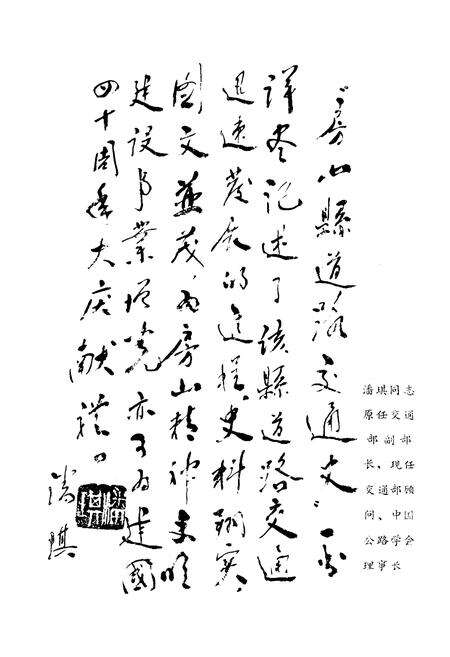 “房山縣道路交通史”一书
详尽记述了该縣道路交通
迅速发展的过程，史料翔实，
图文並茂，为房山精神文明
建设事業增光，亦可为建國
四十周年大庆献礼。
潘琪
潘琪同志
原任交通
部副部
长，现任
交通部顾
问、中国
公路学会
理事长